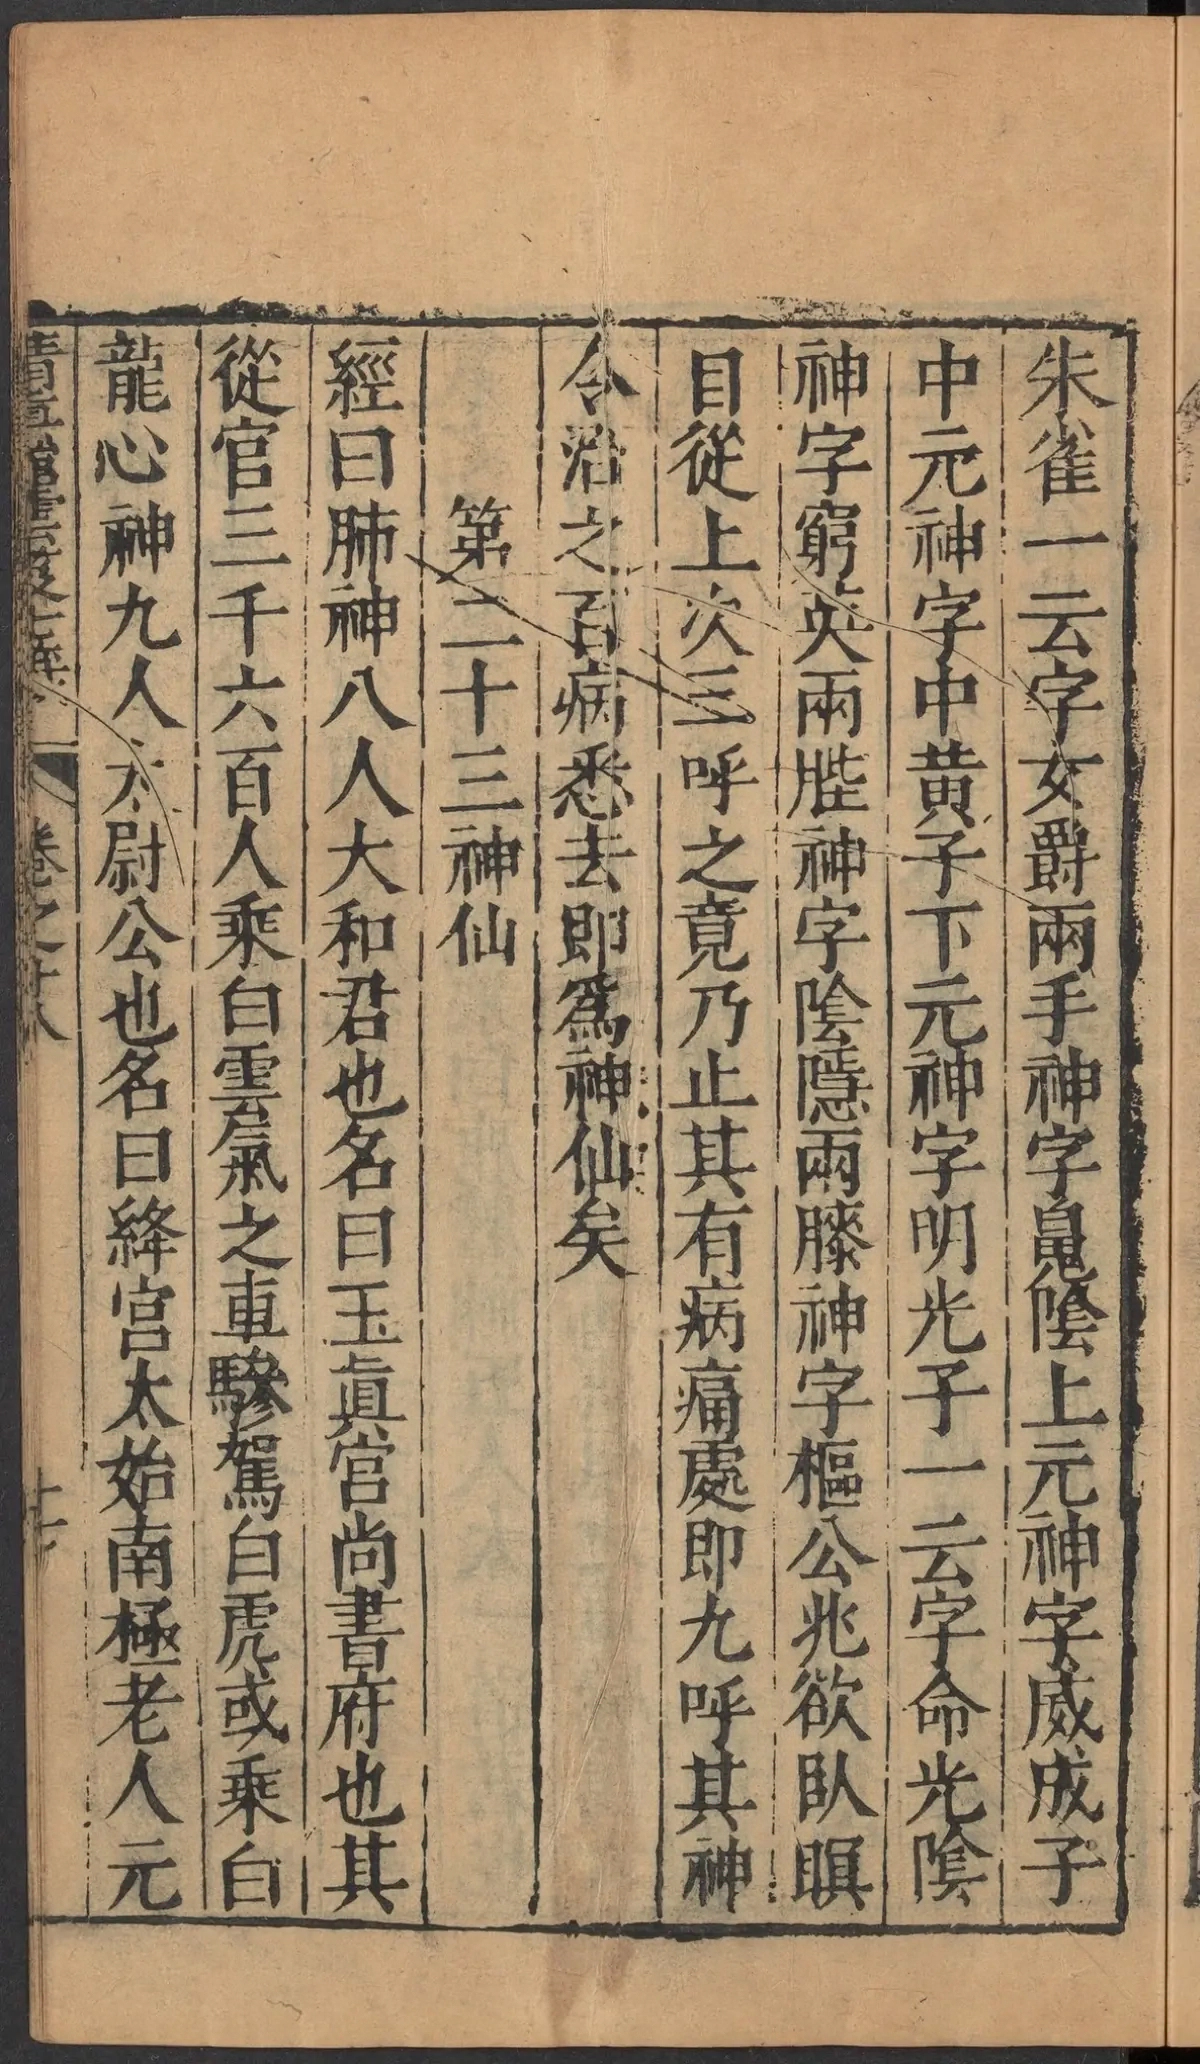 朱雀一云字女爵兩手神字�
陰上元神字威成子
中元神字中黄子下元神字明光子一云字命光陰
神字窮英兩䏶神字陰隱兩膝神字樞公兆欲臥瞑
目從上次三呼之竟乃止其有病痛處即九呼其神
令治之百病悉去即爲神仙矣
第二十三神仙
經曰肺神八人大和君也名曰玉眞宮尚書府也其
從官三千六百人乘白雲氣之車驂駕白虎或乘白
龍心神九人太尉公也名曰絳宮太始南極老人元
卷之十八